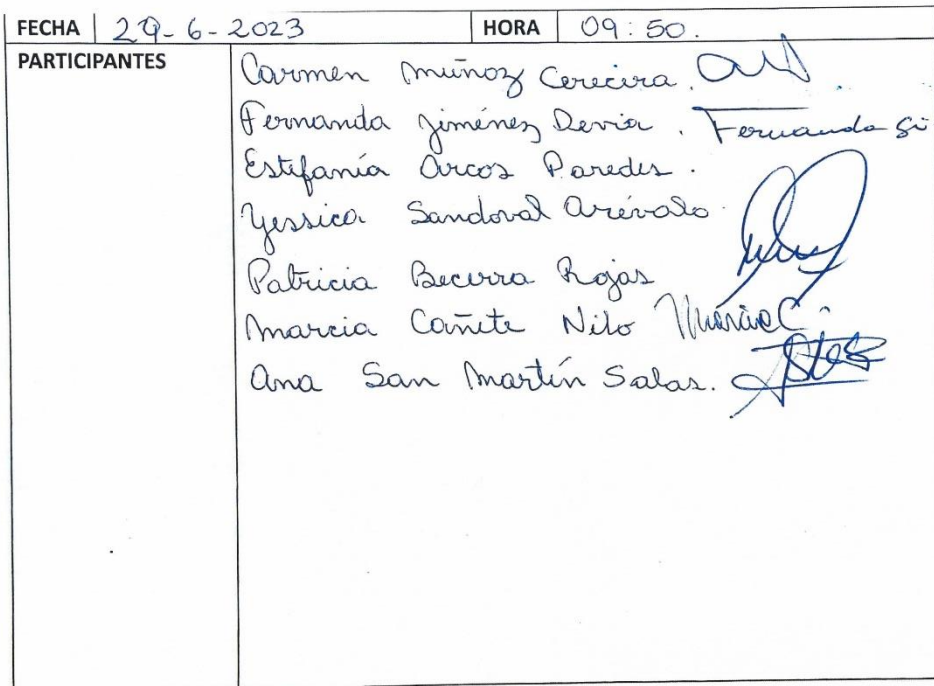 FECHA 29-6-2023 HORA 09:50.
PARTICIPANTES
Carmen Muñoz Cerecera.
Fernanda Jiménez Devia. Fernanda
Estefanía Arcos Paredes.
Yessica Sandoval Arévalo
Patricia Becerra Rojas
Marcia Cañete Nilo Marcia C.
Ana San Martín Salas.